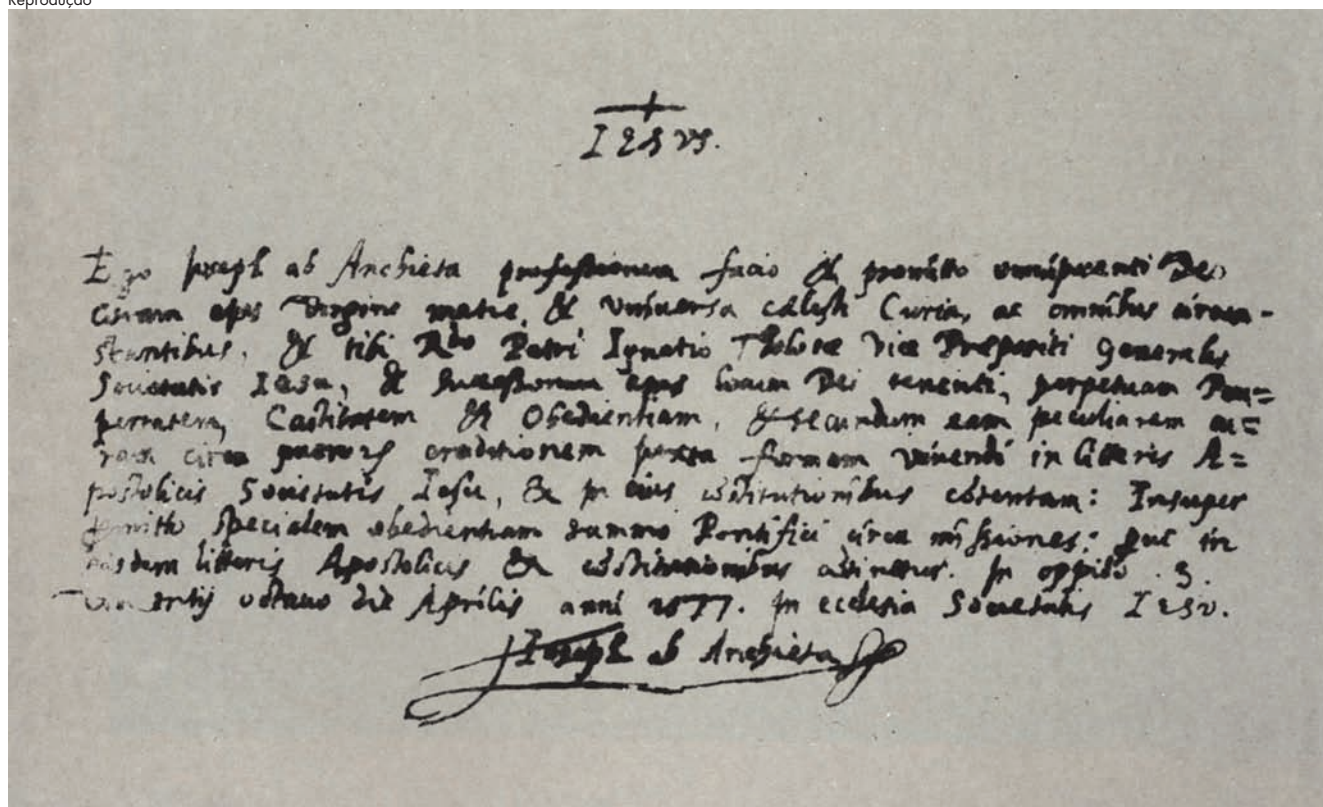 Reprodução
Iesus.
Ego Joseph ab Anchieta professionem facio & promitto omnipotenti Deo
coram ejus Virgine matre, & universa cælesti Curia, ac omnibus circum-
stantibus, & tibi Rdo Patri Ignatio Tholosæ Vice Præpositi Generalis
Societatis Iesu, & successorum ejus locum Dei tenenti, perpetuam Pau=
pertatem, Castitatem & Obedientiam, & secundum eam peculiarem cu=
ram circa puerorum eruditionem juxta formam vivendi in litteris A=
postolicis Societatis Iesu, & in eius cõstitutionibus cõtentam: Insuper
promitto specialem obedientiam summo Pontifici circa missiones: put in
eisdem litteris Apostolicis & cõstitutionibus cõtinetur. In oppido .S.
Vincentij octavo die Aprilis anni 1577. In ecclesia Societatis Iesu.
Joseph ab Anchieta